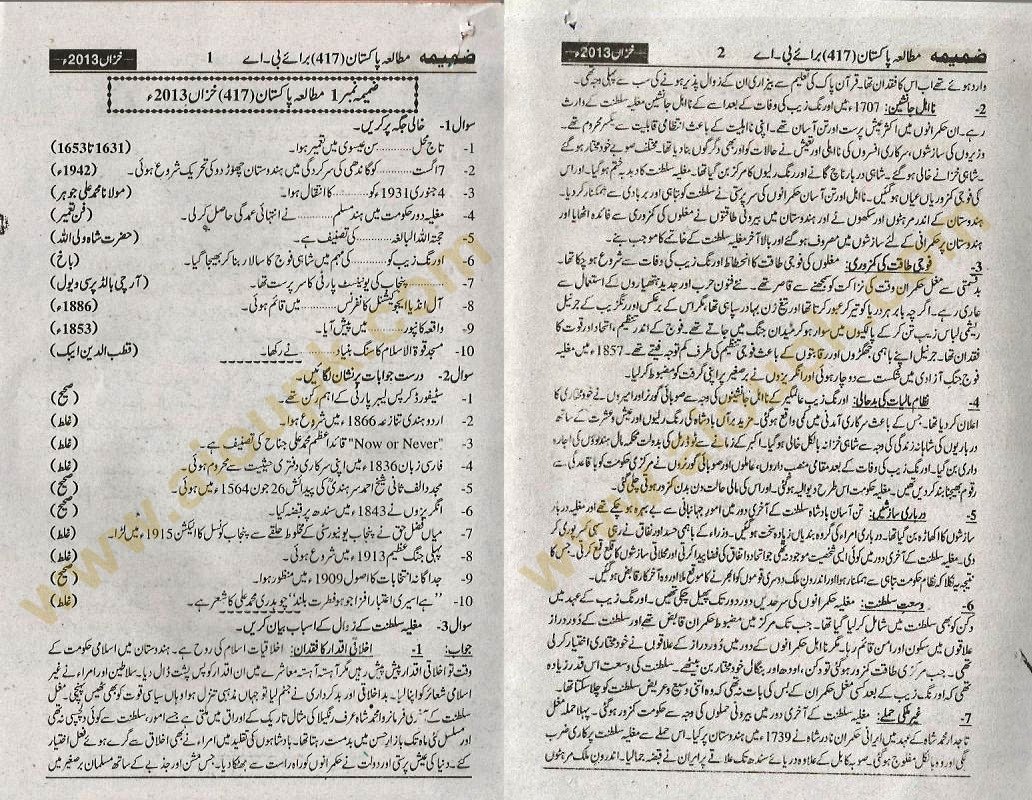 ضمیمہ مطالعہ پاکستان (417) برائے بی۔اے 1 خزاں 2013ء
ضمیمہ نمبر 1 مطالعہ پاکستان (417) خزاں 2013ء
سوال 1- خالی جگہ پر کریں۔
1- تاج محل ............ سن عیسوی میں تعمیر ہوا۔ (1631 تا 1653)
2- 7 اگست ............ کو گاندھی کی سرکردگی میں ہندوستان چھوڑ دو کی تحریک شروع ہوئی۔ (1942ء)
3- 4 جنوری 1931 کو ............ کا انتقال ہوا۔ (مولانا محمد علی جوہر)
4- مغلیہ دور حکومت میں ہند مسلم ............ نے انتہائی عمدگی حاصل کر لی۔ (فن تعمیر)
5- حجتہ اللہ البالغہ ............ کی تصنیف ہے۔ (حضرت شاہ ولی اللہ)
6- اورنگ زیب کو ............ کی مہم میں شاہی فوج کا سالار بنا کر بھیجا گیا۔ (بلخ)
7- ............ پنجاب کی یونینسٹ پارٹی کا سرپرست تھا۔ (آرچی بالڈ پرسی ویول)
8- آل انڈیا ایجوکیشنل کانفرنس ............ میں قائم ہوئی۔ (1886ء)
9- واقعہ کانپور ............ میں پیش آیا۔ (1853ء)
10- مسجد قوۃ الاسلام کا سنگ بنیاد ............ نے رکھا۔ (قطب الدین ایبک)
سوال 2- درست جوابات پر نشان لگائیں۔
1- سٹیفورڈ کرپس لیبر پارٹی کے اہم رکن تھے۔ (صحیح)
2- اردو ہندی تنازعہ 1866ء میں شروع ہوا۔ (غلط)
3- "Now or Never" قائد اعظم محمد علی جناح کی تصنیف ہے۔ (غلط)
4- فارسی زبان 1836ء میں اپنی سرکاری دفتری حیثیت سے محروم ہوئی۔ (غلط)
5- مجدد الف ثانی شیخ احمد سرہندی کی پیدائش 26 جون 1564ء میں ہوئی۔ (صحیح)
6- انگریزوں نے 1843ء میں سندھ پر قبضہ کیا۔ (صحیح)
7- میاں فضل حق نے پنجاب یونیورسٹی کے مخلوط حلقے سے پنجاب کونسل کا الیکشن 1915 میں لڑا۔ (غلط)
8- پہلی جنگ عظیم 1913ء میں شروع ہوئی۔ (غلط)
9- جداگانہ انتخابات کا اصول 1909 میں منظور ہوا۔ (صحیح)
10- "ہے اسیری اعتبار افزا جو ہو فطرت بلند" چوہدری محمد علی کا شعر ہے۔ (غلط)
سوال 3- مغلیہ سلطنت کے زوال کے اسباب بیان کریں۔
جواب: 1- اخلاقی اقدار کا فقدان: اخلاقیات اسلام کی روح ہے۔ ہندوستان میں اسلامی حکومت کے
وقت تو اخلاقی اقدار پیش پیش رہیں مگر آہستہ آہستہ معاشرے میں ان اقدار کو پس پشت ڈال دیا۔ سلاطین اور امراء نے غیر
اسلامی شعائر کو اپنا لیا۔ بداخلاقی اور بدکرداری نے جنم لیا تو جہاں مذہبی تنزل ہوا وہاں سیاسی قوت کو بھی ٹھیس پہنچی۔ مغل
سلطنت کے فرمانروا محمد شاہ عرف رنگیلا کی مثال تاریخ کے اوراق میں ملتی ہے جسے امور سلطنت سے کوئی دلچسپی نہ تھی
اور مسلسل کئی ماہ تک بازار حسن میں بدمست رہتا تھا۔ بادشاہوں کی تقلید میں امراء نے بھی اخلاق سے گرے ہوئے فعل اختیار
کئے۔ دنیا کی عیش پرستی اور دولت نے حکمرانوں کو راہ راست سے بھٹکا دیا۔ جس مشن اور جذبے کے ساتھ مسلمان برصغیر میں
ضمیمہ مطالعہ پاکستان (417) برائے بی۔اے 2 خزاں 2013ء
وارد ہوئے تھے اب اس کا فقدان تھا۔ قرآن پاک کی تعلیم سے بیزاری ان کے زوال پذیر ہونے کی سب سے پہلی وجہ تھی۔
2- نااہل جانشین: 1707ء میں اورنگ زیب کی وفات کے بعد اسے کے نااہل جانشین مغلیہ سلطنت کے وارث
رہے۔ ان حکمرانوں میں اکثر عیش پرست اور تن آسان تھے۔ اپنی نااہلیت کے باعث انتظامی قابلیت سے یکسر محروم تھے۔
وزیروں کی سازشوں، سرکاری افسروں کی نااہلی اور تعیش نے حالات کو اور بھی دگرگوں بنا دیا تھا۔ مختلف صوبے خود مختار ہو گئے
تھے۔ شاہی خزانے خالی ہو گئے۔ شاہی دربار ناچ گانے اور رنگ رلیوں کا مرکز بن گیا تھا۔ مغلیہ سلطنت کا دبدبہ ختم ہو گیا۔ اس
کی فوجی کمزوریاں عیاں ہو گئیں۔ نااہل اور تن آسان حکمرانوں کی سرپرستی نے سلطنت کو تباہی اور بربادی سے ہمکنار کر دیا۔
ہندوستان کے اندر مرہٹوں اور سکھوں نے اور ہندوستان میں بیرونی طاقتوں نے مغلوں کی کمزوری سے فائدہ اٹھایا اور
ہندوستان پر حکمرانی کے لئے سازشوں میں مصروف ہو گئے اور بالآخر مغلیہ سلطنت کے خاتمے کا موجب بنے۔
3- فوجی طاقت کی کمزوری: مغلوں کی فوجی طاقت کا انحطاط اورنگ زیب کی وفات سے شروع ہو چکا تھا۔
بدقسمتی سے مغل حکمران وقت کی نزاکت کو سمجھنے سے قاصر تھے۔ نئے فنون حرب اور جدید ہتھیاروں کے استعمال سے
عاری رہے۔ اگرچہ بابر ہر دریا کو تیر کر عبور کرتا تھا اور تیغ زن بہادر سپاہی تھا مگر اس کے برعکس اورنگزیب کے جرنیل
ریشمی لباس زیب تن کر کے پالکیوں میں سوار ہو کر میدان جنگ میں جاتے تھے۔ فوج کے اندر تنظیم، اتحاد اور قوت کا
فقدان تھا۔ جرنیل اپنے باہمی جھگڑوں اور رقابتوں کے باعث فوجی تنظیم کی طرف کم توجہ دیتے تھے۔ 1857ء میں مغلیہ
فوج جنگ آزادی میں شکست سے دوچار ہوئی اور انگریزوں نے برصغیر پر اپنی گرفت کو مضبوط کر لیا۔
4- نظام مالیات کی بدحالی: اورنگ زیب عالمگیر کے نااہل جانشینوں کی وجہ سے صوبائی گورنر اور امیروں نے خود مختاری کا
اعلان کر دیا تھا۔ جس کے باعث سرکاری آمدنی میں کمی واقع ہو گئی۔ مزید برآں بادشاہ کی رنگ رلیوں اور عیش و عشرت کے ساتھ
درباریوں کی شاہانہ زندگی کی وجہ سے شاہی خزانہ بالکل خالی ہو گیا۔ اکبر کے زمانے سے ٹوڈرمل کی بدولت محکمہ مال ہندوؤں کی اجارہ
داری بن گیا۔ اورنگ زیب کی وفات کے بعد مقامی منصب داروں، عاملوں اور صوبائی گورنروں نے مرکزی حکومت کو باقاعدگی سے
رقوم بھیجنا بند کر دیں تھیں۔ مغلیہ حکومت اس طرح دیوالیہ ہو گئی۔ اور اس کی مالی حالت دن بدن کمزور ہوتی چلی گئی۔
5- درباری سازشیں: تن آسان بادشاہ سلطنت کے آخری دور میں امور جہانبانی سے بے بہرہ ہو چکے تھے اور مغلیہ دربار
سازشوں کا اکھاڑہ بن گیا تھا۔ درباری امراء کی گروہ بندیاں زیادہ سخت ہو گئیں۔ وزراء کے باہمی حسد اور نفاق نے رہی سہی کسر پوری کر
دی۔ مغلیہ حکومت کے آخری دور میں کوئی ایسی شخصیت موجود نہ تھی جو اتحاد و اتفاق کی فضا پیدا کرتی اور محلاتی سازشوں کا قلع قمع کرتی۔ جس کا
نتیجہ یہ نکلا کہ نظام حکومت تباہی سے ہمکنار ہوا اور اندرون ملک دوسری قوموں کو ابھرنے کا موقع ملا اور وہ آخر کار قابض ہو گئیں۔
6- وسعت سلطنت: مغلیہ حکمرانوں کی سرحدیں دور دور تک پھیل چکی تھیں۔ اورنگ زیب کے عہد میں
دکن کو بھی سلطنت میں شامل کر لیا گیا تھا۔ جب تک مرکز میں مضبوط حکمران قابض تھے اور سلطنت کے دور دراز
علاقوں میں سکون اور امن قائم رہا۔ مگر نااہل حکمرانوں کے دور میں دور دراز کے علاقوں نے خود مختاری اختیار کر لی
تھی۔ جب مرکزی طاقت کمزور ہو گئی تو دکن، اودھ اور بنگال خود مختار بن بیٹھے۔ سلطنت کی وسعت اس قدر زیادہ
تھی کہ اورنگ زیب کے بعد کسی مغل حکمران کے بس کی بات نہ تھی کہ وہ اتنی وسیع و عریض سلطنت کو چلا سکتا تھا۔
7- غیر ملکی حملے: مغلیہ سلطنت کے آخری دور میں بیرونی حملوں کی وجہ سے حکومت کمزور ہو گئی۔ پہلا حملہ مغل
تاجدار محمد شاہ کے عہد میں ایرانی حکمران نادر شاہ نے 1739ء میں ہندوستان پر کیا۔ اس حملے سے سلطنت پر کاری ضرب
لگی اور وہ بالکل مفلوج ہو گئی۔ صوبہ کابل کے علاوہ دریائے سندھ تک علاقے پر ایران نے قبضہ جما لیا۔ اندرون ملک مرہٹوں
www.aiounpk.com
www.aiounpk.com